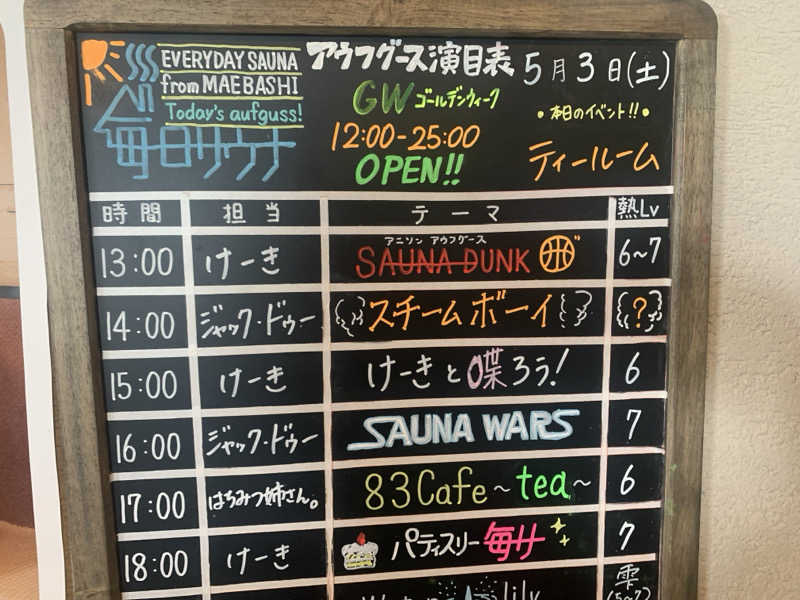 EVERYDAY SAUNA
from MAEBASHI
Today's aufguss!
毎日サウナ
アウフグース演目表
5月3日(土)
GW ゴールデンウィーク
12:00-25:00
OPEN!!
・本日のイベント!!・
ティールーム
時間 担当 テーマ 熱Lv
アニソン アウフグース
13:00 けーき SAUNA DUNK 6~7
14:00 ジャック・ドゥー スチームボーイ ?
15:00 けーき けーきと喋ろう! 6
16:00 ジャック・ドゥー SAUNA WARS 7
17:00 はちみつ姉さん。 83Cafe~tea~ 6
18:00 けーき パティスリー毎サ 7
lily 雫
(5~7)